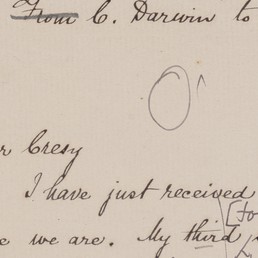 From C. Darwin to
r Cresy
I have just received
[to
e we are. My third